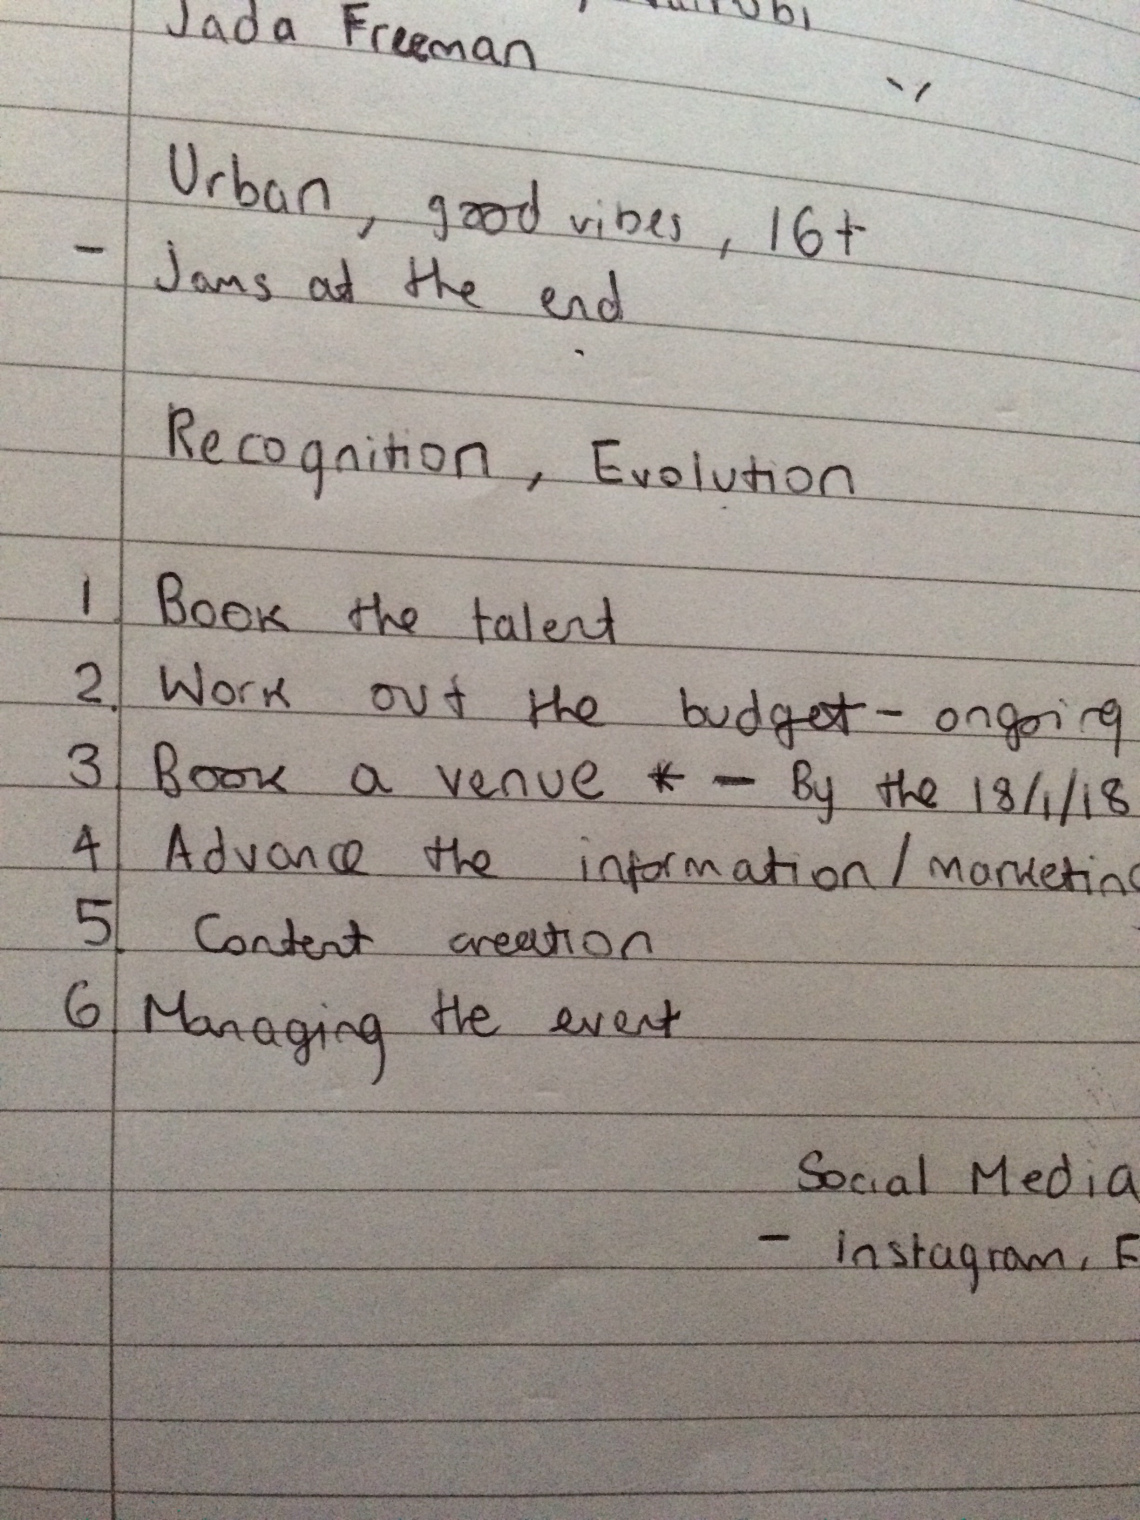 Jada Freeman
Urban, good vibes, 16+
- Jams at the end
Recognition, Evolution
1 Book the talent
2. Work out the budget - ongoing
3 Book a venue * - By the 18/1/18
4 Advance the information / marketing
5. Content creation
6 Managing the event
Social Media
- instagram,